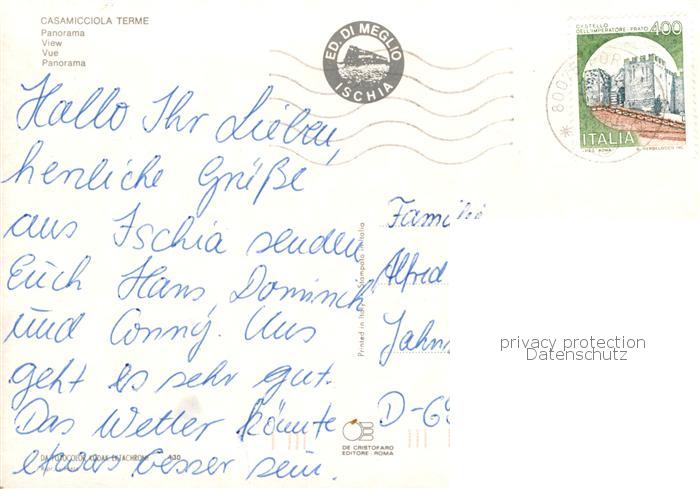 CASAMICCIOLA TERME
Panorama
View
Vue
Panorama
ED. DI MEGLIO
ISCHIA
CASTELLO
DELL'IMPERATORE - PRATO 400
ITALIA
Hallo Ihr Lieben,
herzliche Grüße
aus Ischia senden
Euch Hans, Dominick
und Conny. Uns
geht es sehr gut.
Das Wetter könnte
etwas besser sein.
Printed in Italy - Stampato in Italia
Familie
Alfred
Jahn
D-69
privacy protection
Datenschutz
DE CRISTOFARO
EDITORE - ROMA
DA FOTOCOLOR KODAK EKTACHROME 430